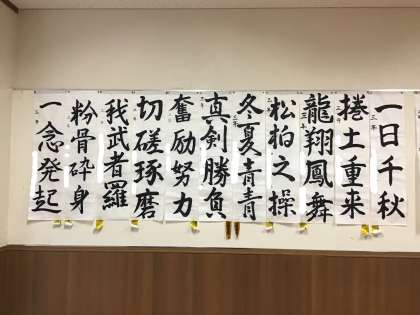 一日千秋
捲土重来
龍翔鳳舞
松柏之操
冬夏青青
真剣勝負
奮励努力
切磋琢磨
我武者羅
粉骨砕身
一念発起